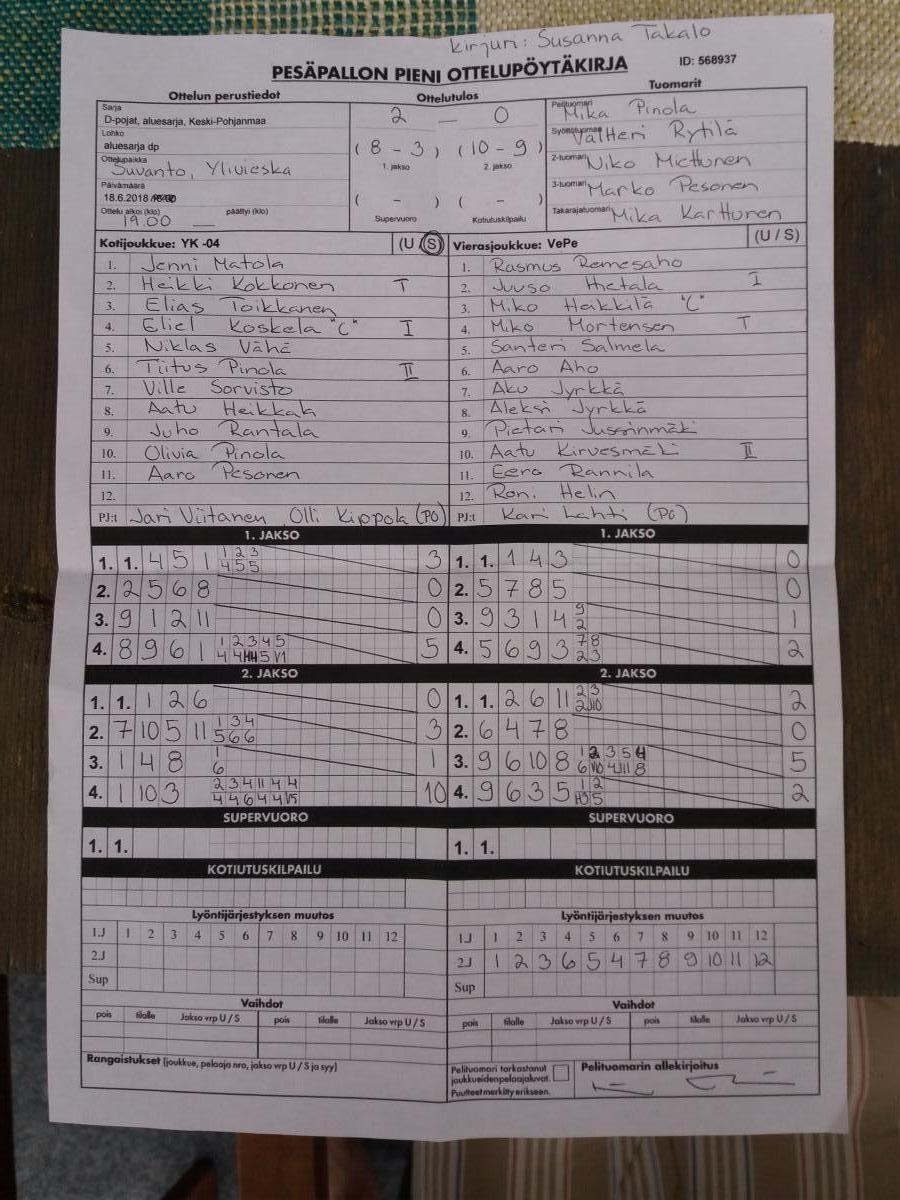 Kirjuri: Susanna Takalo
PESÄPALLON PIENI OTTELUPÖYTÄKIRJA
ID: 568937
Ottelun perustiedot
Ottelutulos
Tuomarit
Sarja
D-pojat, aluesarja, Keski-Pohjanmaa
Lohko
aluesarja dp
Ottelupaikka
Suvanto, Ylivieska
Päivämäärä
18.6.2018
Ottelu alkoi (klo) päättyi (klo)
19.00
2 — 0
(8 - 3) (10 - 9)
1. jakso 2. jakso
( - ) ( - )
Supervuoro Kotiutuskilpailu
Pelituomari Mika Pinola
Syöttötuomari Valtteri Rytilä
2-tuomari Niko Miettunen
3-tuomari Marko Pesonen
Takarajatuomari Mika Karttunen
Kotijoukkue: YK -04 (U / S)
1. Jenni Matola
2. Heikki Kokkonen T
3. Elias Toikkanen
4. Eliel Koskela "C" I
5. Niklas Vähä
6. Tiitus Pinola II
7. Ville Sorvisto
8. Aatu Heikkah
9. Juho Rantala
10. Olivia Pinola
11. Aaro Pesonen
12.
PJ:t Jari Viitanen Olli Kippola (PO)
Vierasjoukkue: VePe (U / S)
1. Rasmus Remesaho
2. Juuso Hietala I
3. Miko Haikkilä "C"
4. Miko Mortensen T
5. Santeri Salmela
6. Aaro Aho
7. Aku Jyrkkä
8. Aleksi Jyrkkä
9. Pietari Jussinmäki
10. Aatu Kirvesmäki II
11. Eero Rannila
12. Roni Helin
PJ:t Kari Lahti (PG)
1. JAKSO
1. 1. 4 5 1 1 2 3 3
4 5 5
2. 2 5 6 8 0
3. 9 1 2 11 0
4. 8 9 6 1 1 2 3 4 5 5
1. JAKSO
1. 1. 1 4 3 0
2. 5 7 8 5 0
3. 9 3 1 4 9 1
2
4. 5 6 9 3 7 8 2
2 3
2. JAKSO
1. 1. 1 2 6 0
2. 7 10 5 11 1 3 4 3
5 6 6
3. 1 4 8 1 1
6
4. 1 10 3 2 3 4 11 4 4 10
4 4 6 4 4 V5
2. JAKSO
1. 1. 2 6 11 2 3 2
2. 6 4 7 8 0
3. 9 6 10 8 1 2 3 5 4 5
4. 9 6 3 5 1 2 2
SUPERVUORO
1. 1.
SUPERVUORO
1. 1.
KOTIUTUSKILPAILU
KOTIUTUSKILPAILU
Lyöntijärjestyksen muutos
1.J 1 2 3 4 5 6 7 8 9 10 11 12
2.J
Sup
Lyöntijärjestyksen muutos
1.J 1 2 3 4 5 6 7 8 9 10 11 12
2.J 1 2 3 6 5 4 7 8 9 10 11 12
Sup
Vaihdot
pois tilalle Jakso vrp U / S pois tilalle Jakso vrp U / S
Vaihdot
pois tilalle Jakso vrp U / S pois tilalle Jakso vrp U / S
Rangaistukset (joukkue, pelaaja nro, jakso vrp U / S ja syy)
Pelituomari tarkastanut
joukkueidenpelaajaluvat.
Puutteet merkitty erikseen.
Pelituomarin allekirjoitus